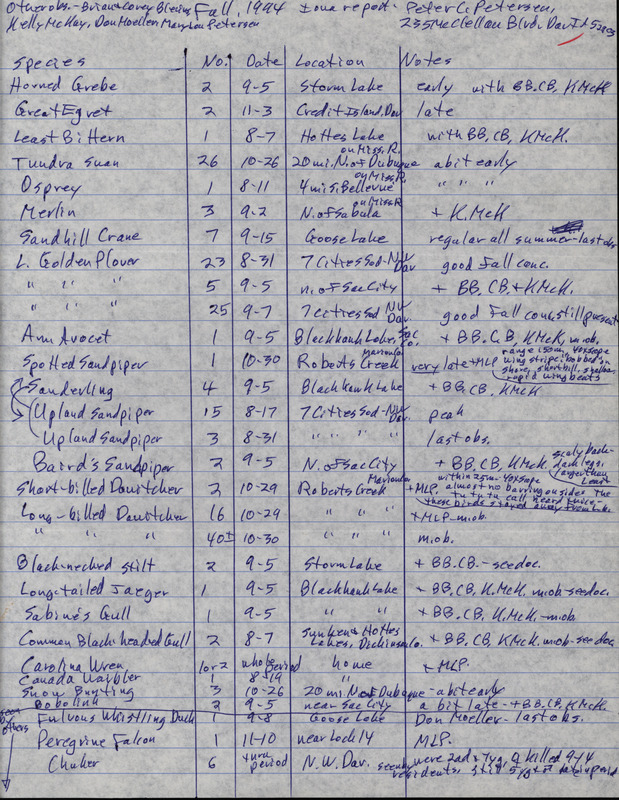 Other obs.- Brian & Corey Blevins Fall, 1994 Iowa report- Peter C. Petersen,
Kelly McKay, Don Moeller, Mary Lou Petersen 235 McClellan Blvd. Dav. IA 52803
Species No. Date Location Notes
Horned Grebe 2 9-5 Storm Lake early with BB, CB, KMcK
Great Egret 2 11-3 Credit Island, Dav late
Least Bittern 1 8-7 Hottes Lake with BB, CB, KMcK.
Tundra Swan 26 10-26 20 mi. N. of Dubuque on Miss. R. a bit early
Osprey 1 8-11 4 mi S. Bellevue on Miss. R. " " "
Merlin 3 9-2 N. of Sabula on Miss R + K. McK
Sandhill Crane 7 9-15 Goose Lake regular all summer - last obs
L. Golden Plover 23 8-31 7 Cities Sod - NW Dav. good fall conc.
" " " 5 9-5 n. of Sac City + BB, CB, + KMcK.
" " " 25 9-7 7 Cities Sod NW Dav. good fall conc, still present
Am Avocet 1 9-5 Blackhawk Lake, Sac Co. + BB. C.B, KMcK, m.ob.
Spotted Sandpiper 1 10-30 Roberts Creek Marion Co. very late + MLP range 150m, 40x scope wing stripe, bobbed on shore, short bill, shallow rapid wing beats
Sanderling 4 9-5 Blackhawk Lake + BB, CB, KMcK
Upland Sandpiper 15 8-17 7 Cities Sod - NW Dav. peak
Upland Sandpiper 3 8-31 " " " " last obs.
Baird's Sandpiper 2 9-5 N. of Sac City + BB, CB, KMcK. scaly back - dark legs, larger than Least
Short-billed Dowitcher 2 10-29 Roberts Creek Marion Co. + MLP, within 25m - 40x scope almost no barring on sides The tu tu tu call heard twice - these birds stayed away from l.b.
Long-billed Dowitcher 16 10-29 " " " + MLP - m.ob.
" " " 40± 10-30 " " m.ob.
Black-necked stilt 2 9-5 Storm Lake + BB. CB. - see doc.
Long-tailed Jaeger 1 9-5 Blackhawk Lake + BB, CB, K.McK. m.ob - see doc.
Sabine's Gull 1 9-5 " " + BB, CB, K.McK. - m.ob.
Common Black-headed Gull 2 8-7 Sunken & Hottes Lakes, Dickinson Co. + BB, CB, KMcK. m.ob - see doc
Carolina Wren 1 or 2 whole period home + MLP.
Canada Warbler 1 8-19 "
Snow Bunting 3 10-26 20 mi. N of Dubuque - a bit early
Bobolink 2 9-5 near Sac City a bit late - + BB, CB, KMcK.
seen by others
Fulvous Whistling Duck 1 9-8 Goose Lake Don Moeller - last obs.
Peregrine Falcon 1 11-10 near Lock 14 MLP.
Chukar 6 thru period N.W. Dav. seen by residents, were 2 ad & 4 yg, killed 9-4